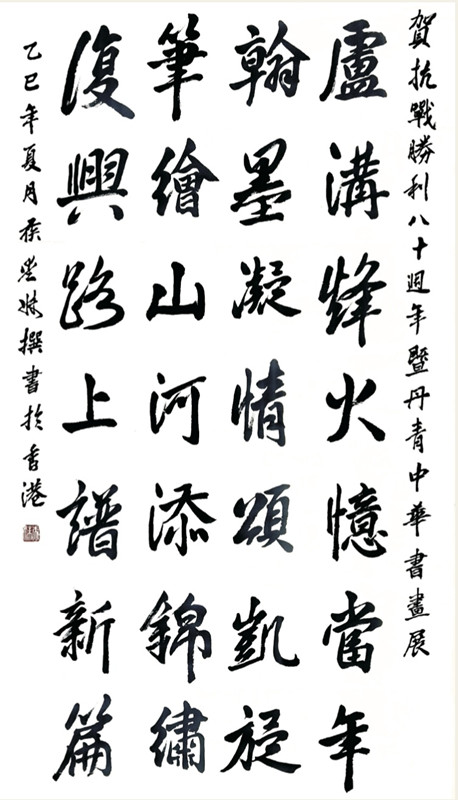 賀抗戰勝利八十週年暨丹青中華書畫展
盧溝烽火憶當年
翰墨凝情頌凱旋
筆繪山河添錦繡
復興路上譜新篇
乙巳年夏月侯玉妹撰書於香港